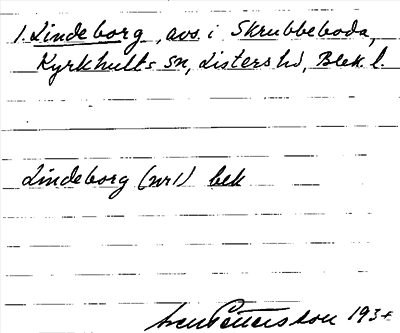 1. Lindeborg, avs. i Skrubbeboda,
Kyrkhults sn, Listers hd, Blek. l.
Lindeborg (nr1) bek
Pettersson 193